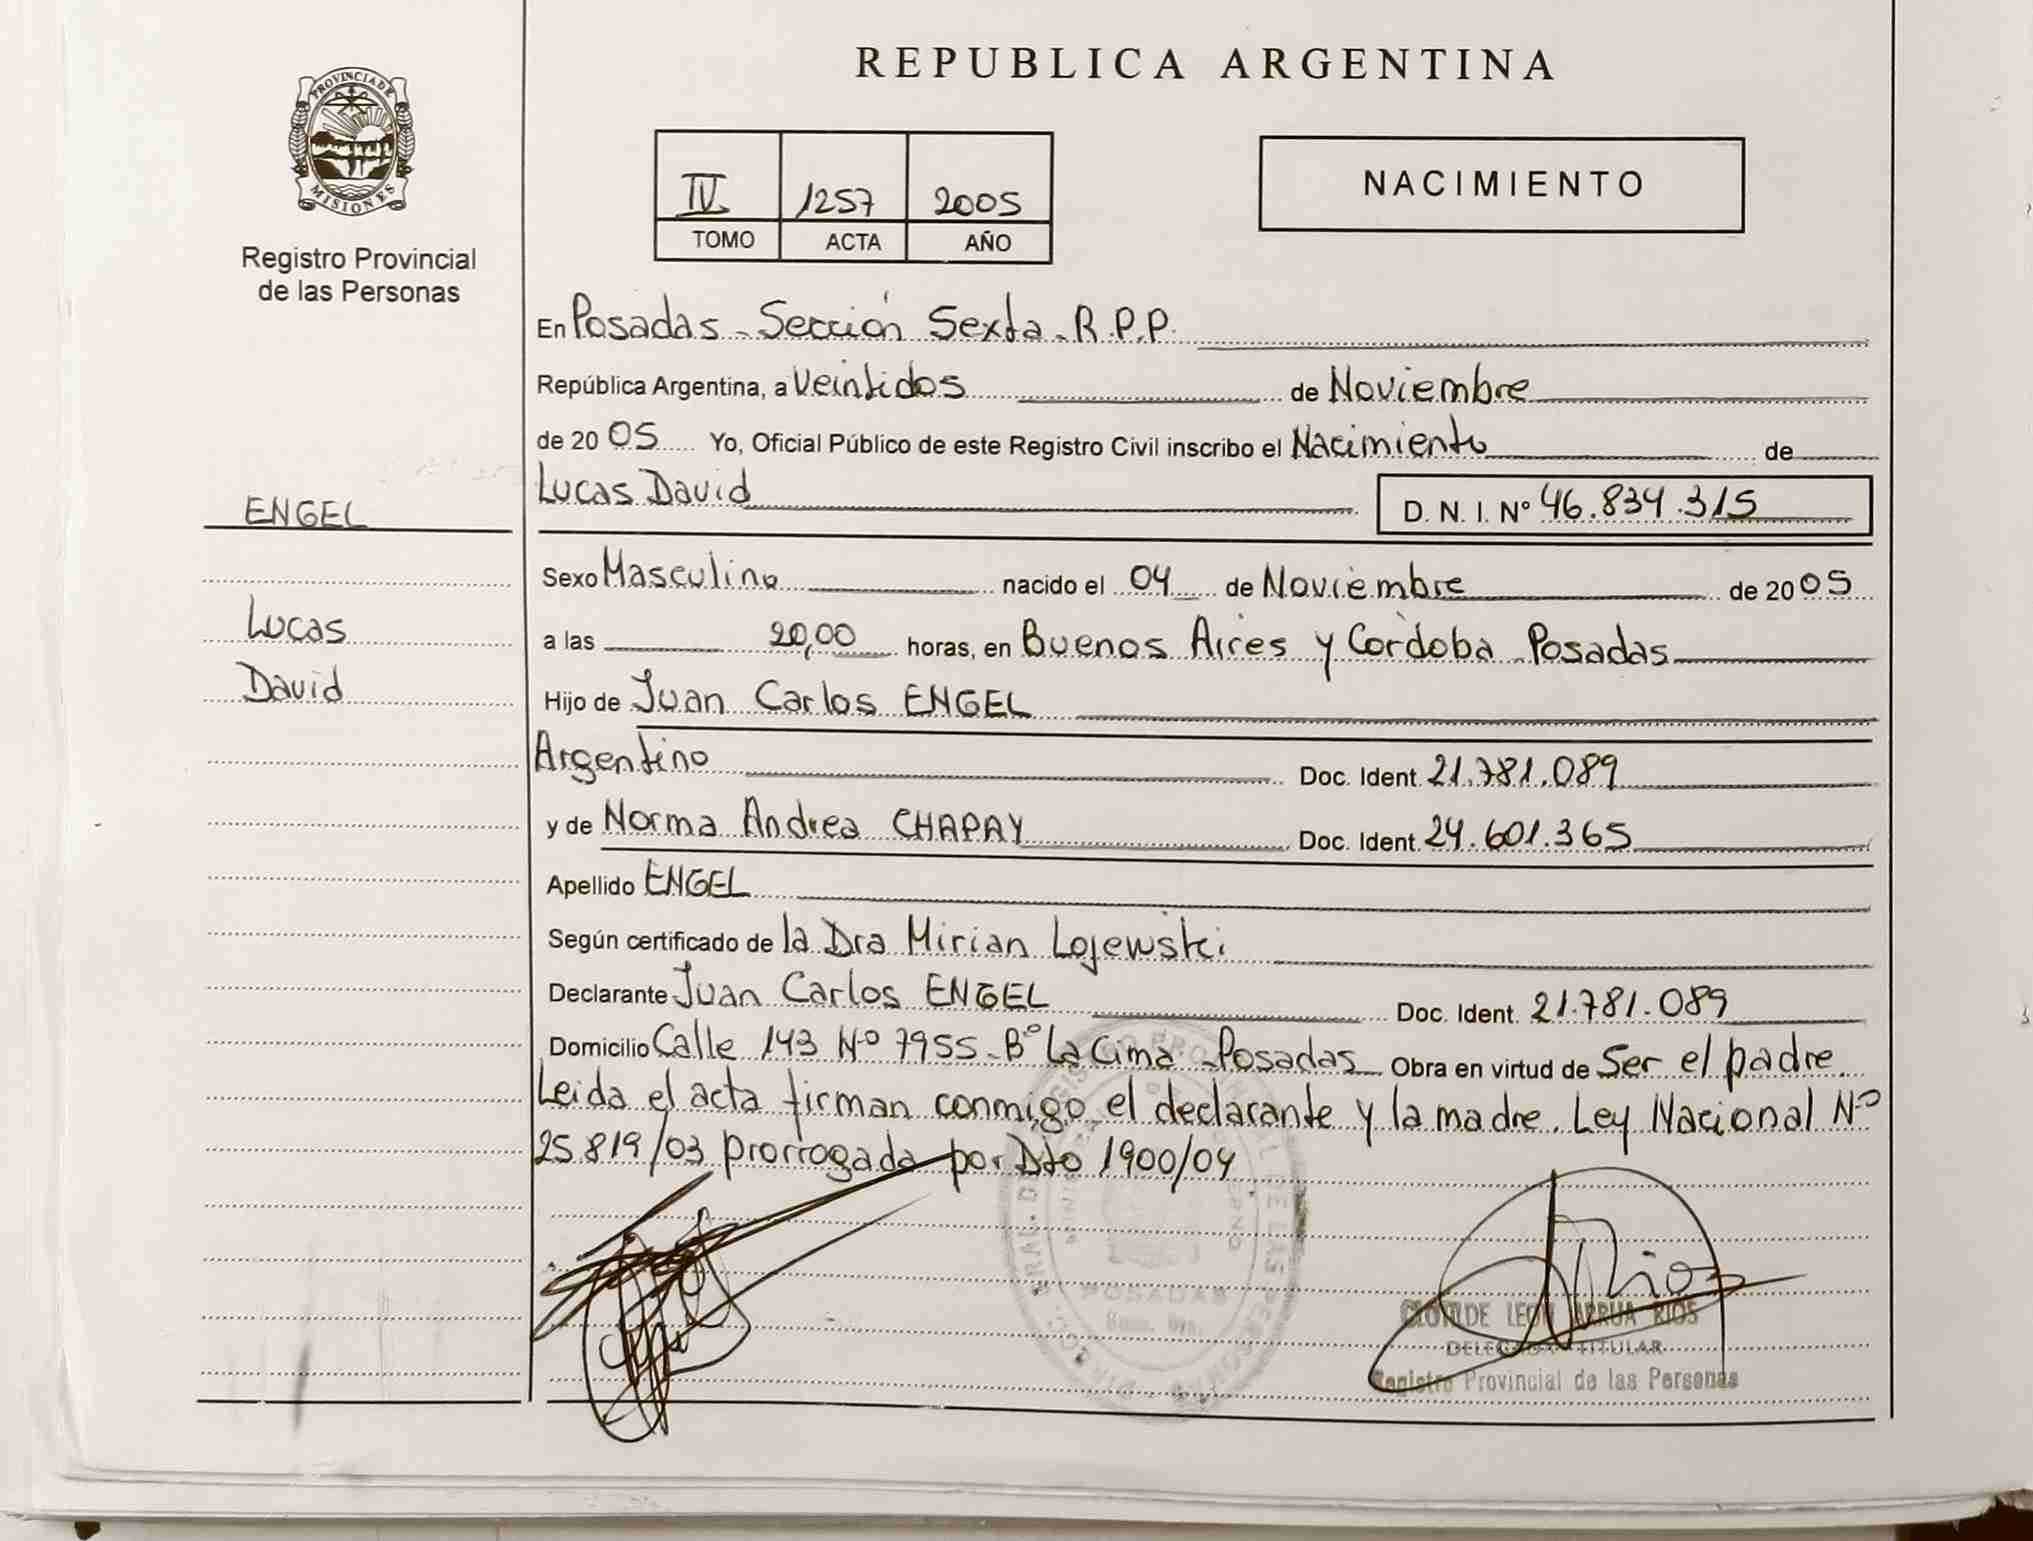 REPUBLICA ARGENTINA
PROVINCIA DE
MISIONES
Registro Provincial
de las Personas
IV 1257 2005
TOMO ACTA AÑO
NACIMIENTO
En Posadas - Sección Sexta - R.P.P.
República Argentina, a Veintidos de Noviembre
de 2005 Yo, Oficial Público de este Registro Civil inscribo el Nacimiento de
Lucas David D. N. I. Nº 46.834.315
ENGEL
Sexo Masculino nacido el 04 de Noviembre de 2005
Lucas
a las 20,00 horas, en Buenos Aires y Cordoba - Posadas
David
Hijo de Juan Carlos ENGEL
Argentino Doc. Ident. 21.781.089
y de Norma Andrea CHAPAY Doc. Ident. 24.601.365
Apellido ENGEL
Según certificado de la Dra Mirian Lojewski
Declarante Juan Carlos ENGEL Doc. Ident. 21.781.089
Domicilio Calle 143 Nº 7955 - Bº La Cima - Posadas Obra en virtud de Ser el padre.
Leida el acta firman conmigo el declarante y la madre. Ley Nacional Nº
25.819/03 prorrogada por Dto 1900/04
POSADAS
CLOTILDE LEON ARRUA RIOS
DELEGADA TITULAR
Registro Provincial de las Personas